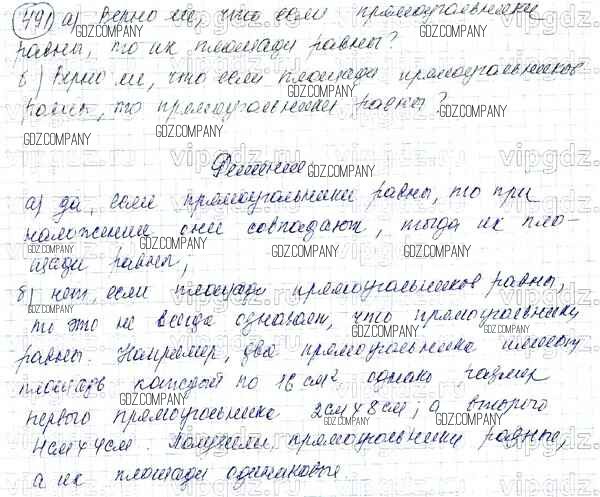 491 а) Верно ли, что если прямоугольники
равны, то их площади равны?
б) Верно ли, что если площади прямоугольников
равны, то прямоугольники равны?
Решение.
а) да, если прямоугольники равны, то при
наложении они совпадают, тогда их пло-
щади равны;
б) нет, если площади прямоугольников равны,
то это не всегда означает, что прямоугольники
равны. Например, два прямоугольника имеют
площадь каждый по 16 см², однако размер
первого прямоугольника 2см х 8см; а второго
4см х 4см. Получили прямоугольники разные,
а их площади одинаковые.